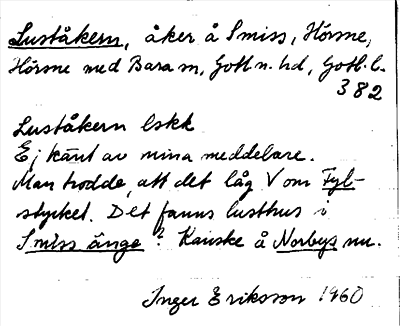 Luståkern, åker å Smiss, Hörsne,
Hörsne med Bara sn, Gotl. n. hd, Gotl. l.
382
Luståkern lskk
Ej känt av mina meddelare.
Man trodde, att det låg V om Fyl-
stycket. Det fanns lusthus i
Smiss änge? Kanske å Norbys nu.
Inger Eriksson 1960